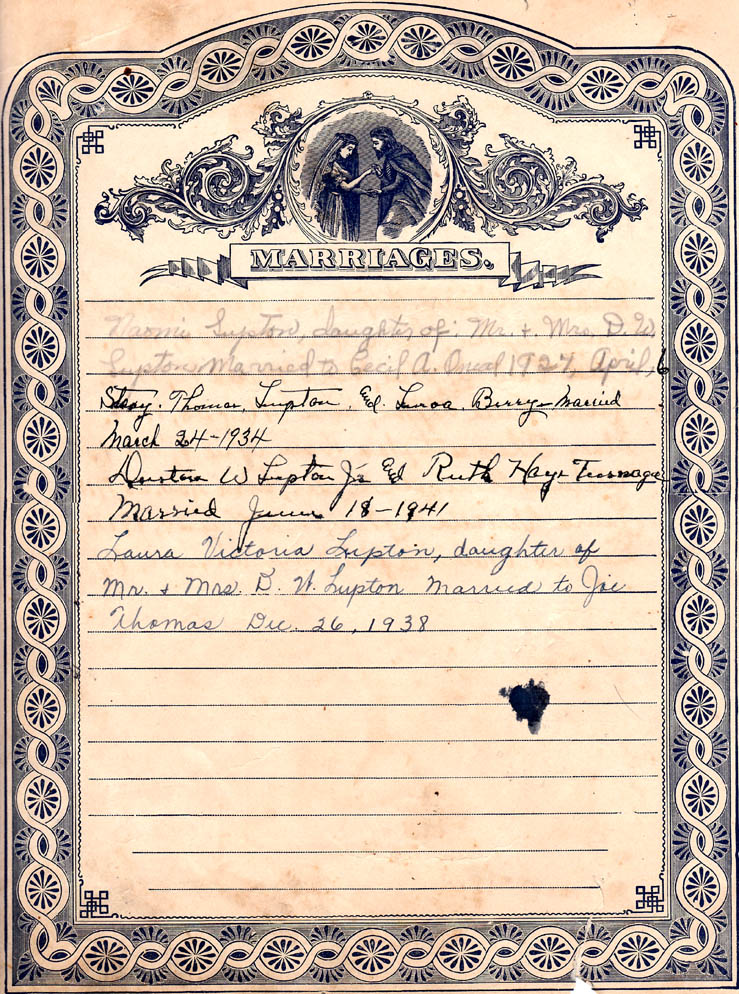 MARRIAGES.
Naomi Lupton, daughter of Mr. & Mrs. D. W.
Lupton Married to Cecil A. Oneal 1927, April, 6
Thomas Lupton and Berry Married
March 24-1934
W Lupton Jr and Ruth Haye
Married June 18-1941
Laura Victoria Lupton, daughter of
Mr. & Mrs. D. W. Lupton Married to Joe
Thomas Dec. 26, 1938